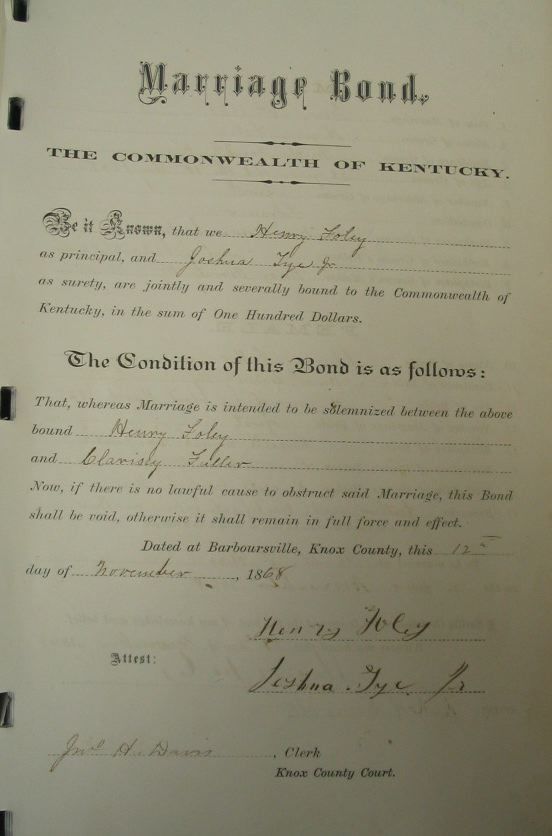 Marriage Bond.
THE COMMONWEALTH OF KENTUCKY.
Be it Known, that we Henry Foley
as principal, and Joshua Tye Jr
as surety, are jointly and severally bound to the Commonwealth of
Kentucky, in the sum of One Hundred Dollars.
The Condition of this Bond is as follows:
That, whereas Marriage is intended to be solemnized between the above
bound Henry Foley
and Clarisy Fuller
Now, if there is no lawful cause to obstruct said Marriage, this Bond
shall be void, otherwise it shall remain in full force and effect.
Dated at Barboursville, Knox County, this 12
day of November, 1868
Henry Foley
Attest:
Joshua Tye Jr
H. Davis, Clerk
Knox County Court.